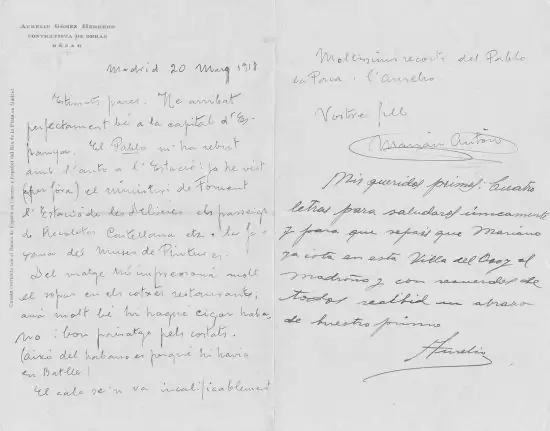 AURELIO GÓMEZ HERRERO
CONTRATISTA DE OBRAS
BÉJAR
Madrid 20 Març 1918
Estimats pares: He arribat
perfectament bé a la capital d'Es-
panya. El Pablo m'ha rebut
amb l'auto a l'Estació: ja he vist
(per fora) el ministeri de Foment
l'Estació de les Delicies els passeigs
de Recoletos Castellana etz i la fa-
çana del museo de Pintures.
Del viatge m'impressioná molt
el sopar en els cotxes restaurants,
aná molt bé hi hagué cigar haba-
no i bon paisatge pels costats.
(això del habano es perquè hi havia
en Batlle!
El cala se'n va incalificablement
Moltissims recorts del Pablo
en Pona i l'Aurelio
Vostre fill
Marián Antón
Mis queridos primos: Cuatro
letras para saludaros únicamente
y para que sepais que Mariano
ya está en esta Villa del Oso y el
Madroño y con recuerdos de
todos recibid un abrazo
de vuestro primo
Aurelio